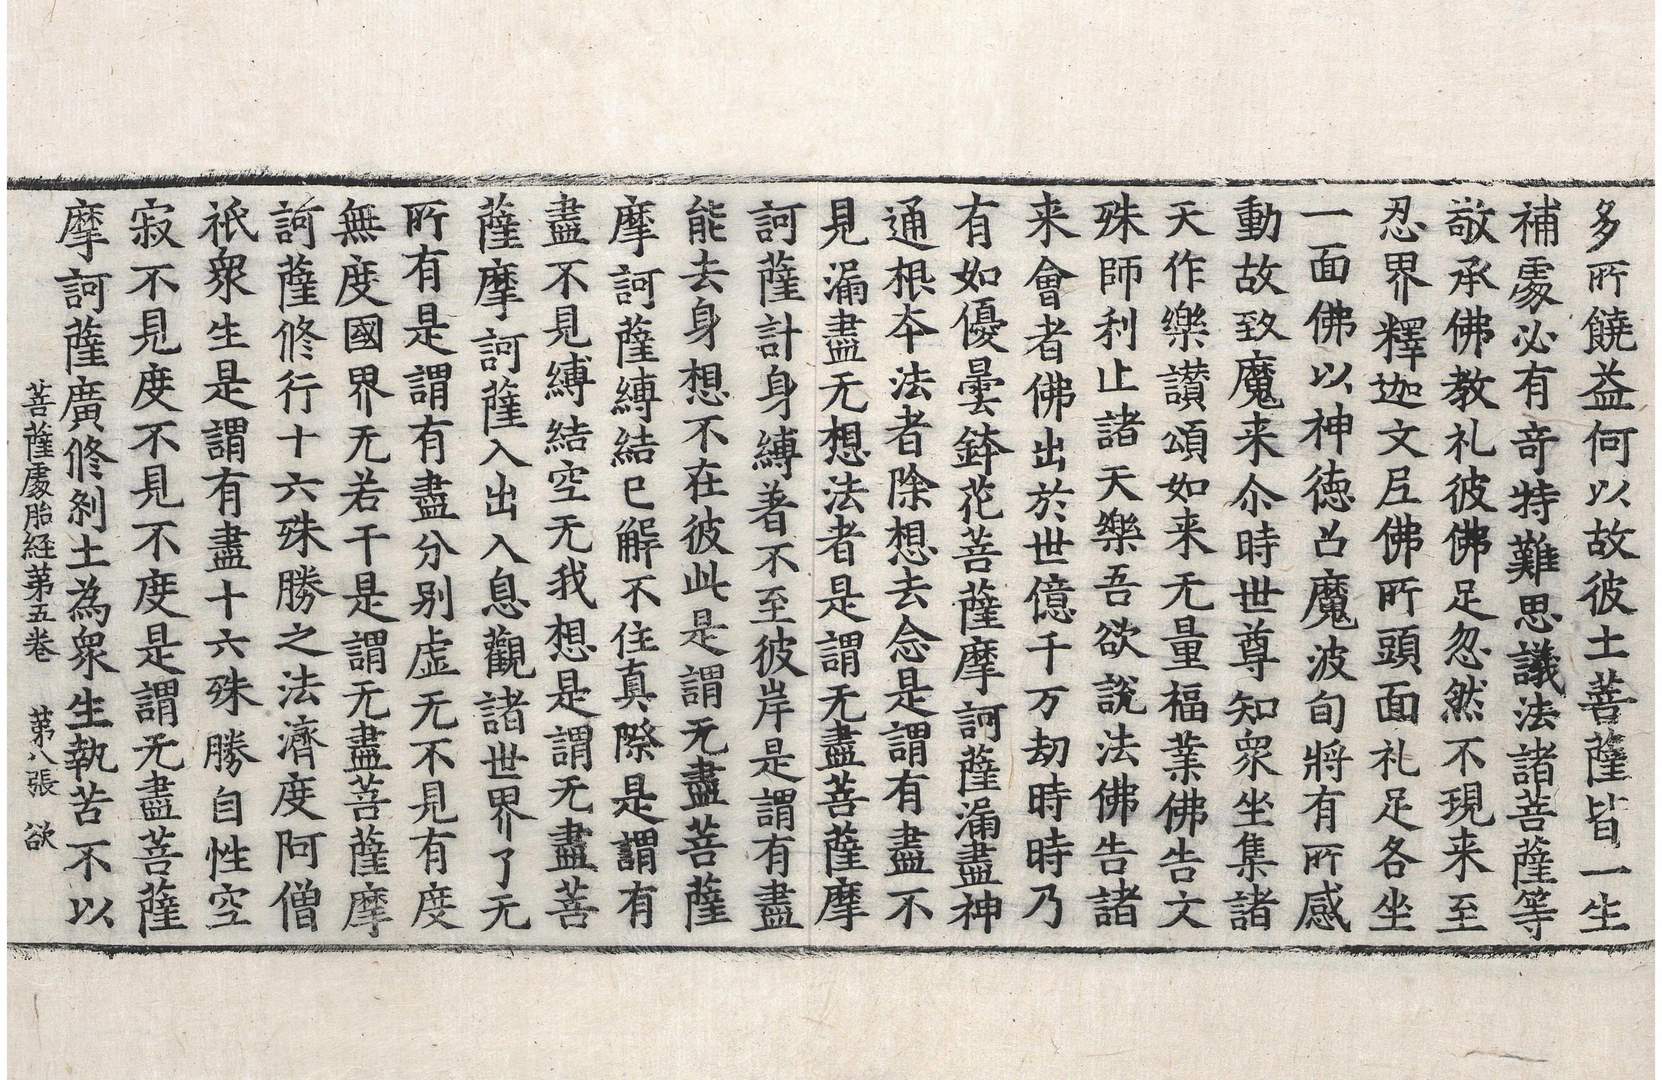 多所饒益何以故彼土菩薩皆一生
補處必有奇特難思議法諸菩薩等
敬承佛教礼彼佛足忽然不現来至
忍界釋迦文𡰱佛所頭面礼足各坐
一面佛以神德召魔波旬將有所感
動故致魔来尒時世尊知衆坐集諸
天作樂讃頌如来无量福業佛告文
殊師利止諸天樂吾欲說法佛告諸
来會者佛出於世億千万劫時時乃
有如優曇鉢花菩薩摩訶薩漏盡神
通根夲法者除想去念是謂有盡不
見漏盡无想法者是謂无盡菩薩摩
訶薩計身縛著不至彼岸是謂有盡
能去身想不在彼此是謂无盡菩薩
摩訶薩縛結已解不住真際是謂有
盡不見縛結空无我想是謂无盡菩
薩摩訶薩入出入息觀諸世界了无
所有是謂有盡分別虚无不見有度
無度國界无若干是謂无盡菩薩摩
訶薩修行十六殊勝之法濟度阿僧
祇衆生是謂有盡十六殊勝自性空
寂不見度不見不度是謂无盡菩薩
摩訶薩廣修刹土為衆生執苦不以
菩薩處胎経苐五卷 苐八張 欲